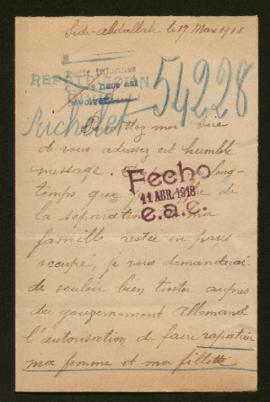 Sidi-Abdallah le 17 Mars 1918
REPATRIACION
54228
Richelet
mettez moi
et vous adresser cet humble
message. long-
Fecho
temps que de
11 ABR. 1918
la séparation
e.a.c.
famille restée en pays
occupé, je vous demanderai
de vouloir bien tenter auprès
du gouvernement allemand
l'autorisation de faire rapatrier
ma femme et ma fillette